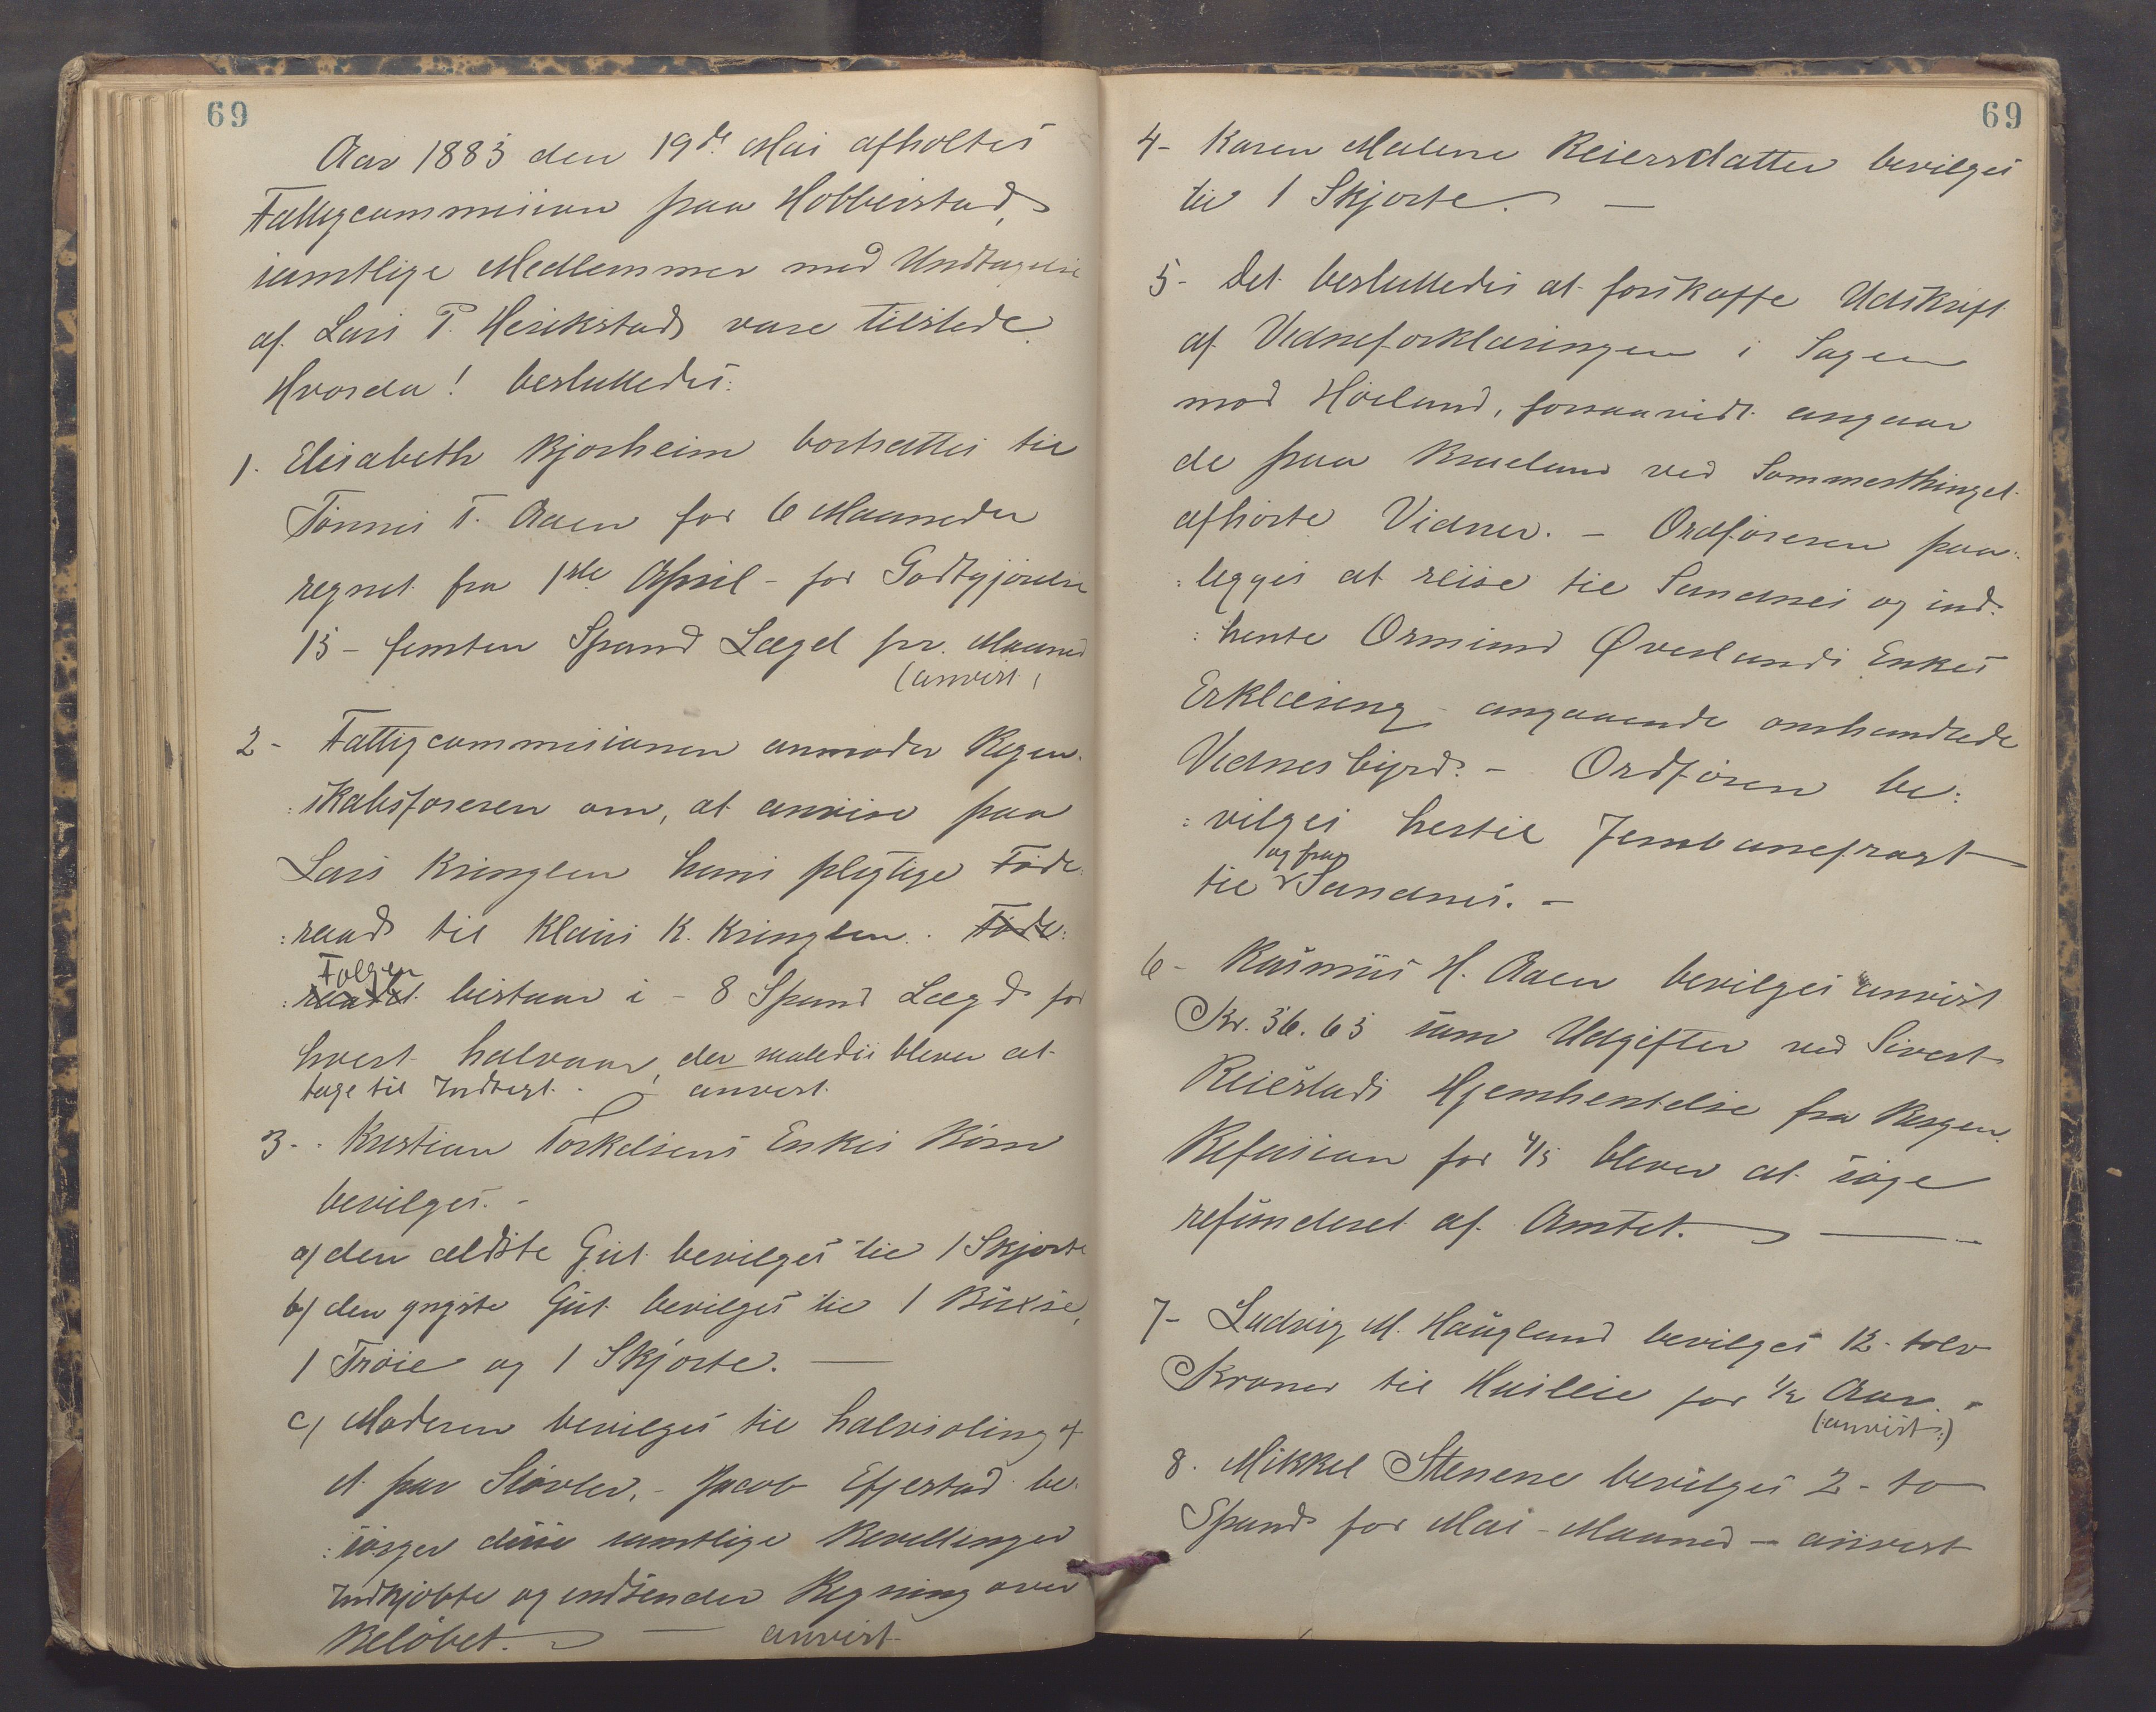 69
Aar 1883 den 19de Mai afholtes
Fattigcommission paa Hobberstad,
samtlige Medlemmer med Undtagelse
af Lars T. Herikstad vare tilstede.
Hvorda! besluttedes:
1. Elisabeth Kjosheim bortsattes til
Tönnes T. Aaen for 6 Maaneder
regnet fra 1ste April - for Godtgjörelse
15 - femten Spand Lægd pr. Maaned
(anvist)
2 - Fattigcommissionen anmoder Regen-
:skabsföreren om, at anvise paa
Lars Kringlen hans pligtige Föde:
:raad til Klaus K. Kringlen. Föde:
Folgen
:raadet bestaar i - 8 Spand Lægd for
hvert halvaar, der saaledes bliver at
tage til Indtægt. - anvist.
3 - Kristian Torkelsens Enkes Börn
bevilges. -
a) den ældste Gut bevilges til 1 Skjorte
b) den yngste Gut bevilges til 1 Buxse,
1 Tröie og 1 Skjorte. —
c) Moderen bevilges til halvsoling af
et par Stövler. - Jacob Efjestad be-
:sörger disse samtlige Bevillinger
Indkjöbte og indsender Regning over
Belöbet. — anvist
69
4 - Karen Malene Reiersdatter bevilges
til 1 Skjorte. —
5 - Det besluttedes at forskaffe Udskrift
af Vidneforklaringen i Sagen
mod Höiland, forsaavidt angaar
de paa Brueland ved Sommerthinget
afhörte Vidner. - Ordföreren paa:
:lægges at reise til Sandnes og ind:
:hente Ormund Øverlands Enkes
Erklæring angaaende omhandlede
Vidnesbyrd. - Ordfören be:
:vilges hertil Jernbanefragt
og fra
til Sandnes. -
6 - Rasmus H. Aaen bevilges anvist
Kr. 36.63 som Udgifter ved Sivert
Reiestads Hjemhentelse fra Bergen.
Refusion for 4/5 bliver at söge
refunderet af Amtet. —
7 - Ludvig M. Haugland bevilges 12 - tolv
Kroner til Husleie for 1/2 Aar. -
(anvist:)
8. Mikkel Stenene bevilges 2 - to
Spand for Mai - Maaned - anvist